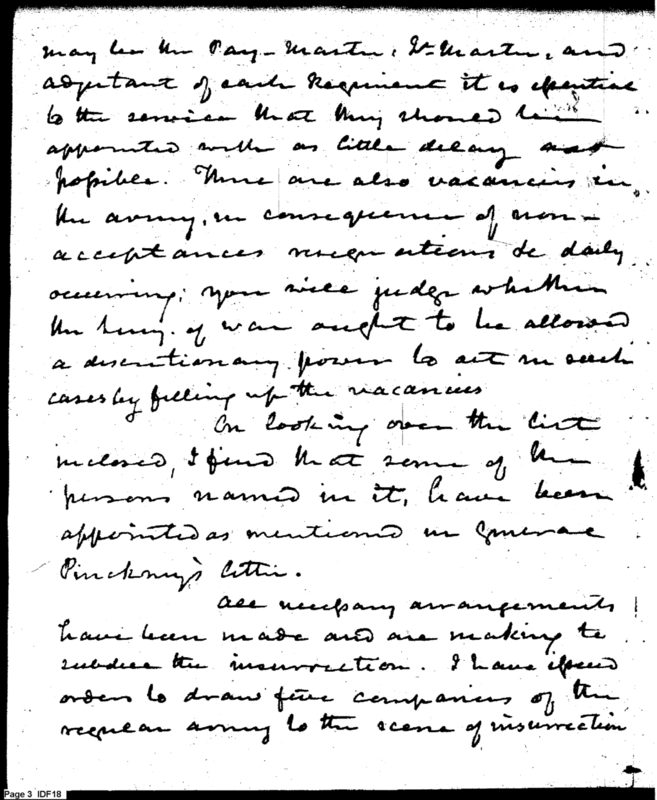 may be the Pay-Master, Qr Master, and
adjutant of each Regiment it is essential
to the service that they should be
appointed with as little delay as
possible. There are also vacancies in
the army, in consequence of non-
acceptances resignations &c daily
occurring; you will judge whether
the Secy. of war ought to be allowed
a discretionary power to act in such
cases by filling up the vacancies
On looking over the list
inclosed, I find that some of the
persons named in it, have been
appointed as mentioned in General
Pinckney's letter.
All necessary arrangements
have been made and are making to
subdue the insurrection. I have issued
orders to draw five companies of the
regular army to the scene of insurrection
Page 3 IDF18